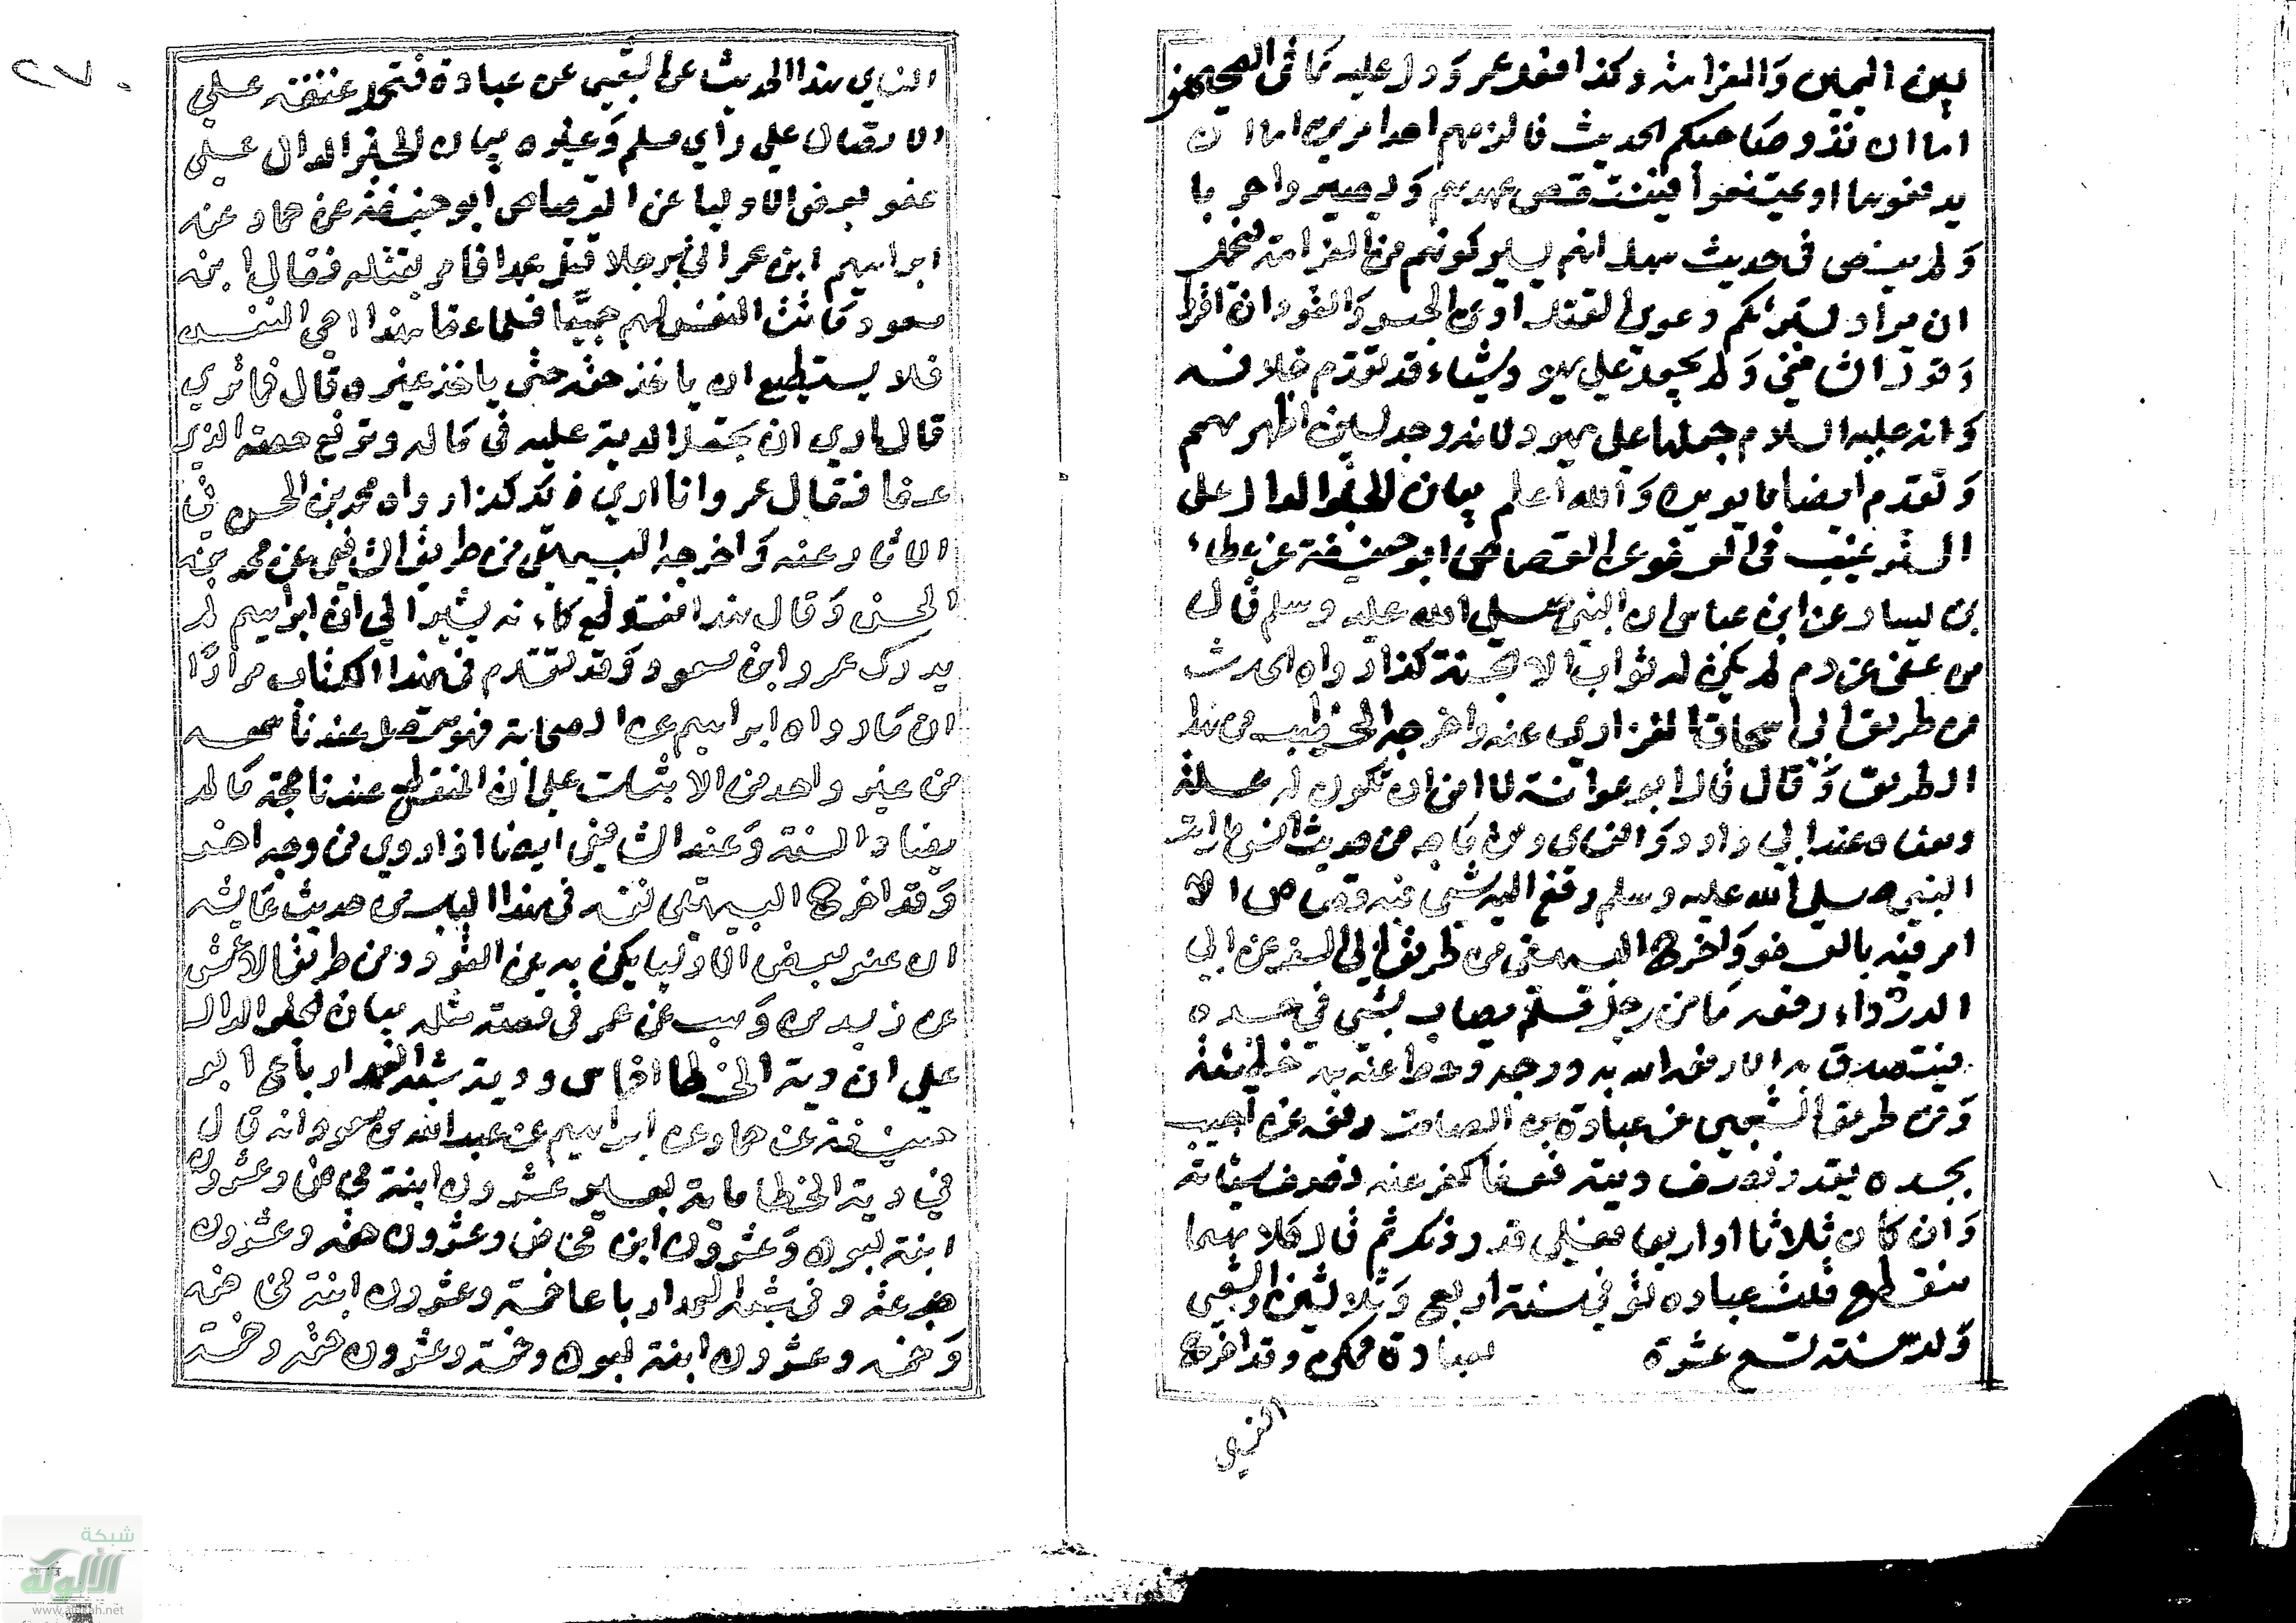 بين اليمين والغرامة وكذا فعل عمر ودل عليه ما في الصحيح هو
اما ان تدوا صاحبكم الحديث فالزمهم احد امرين اما ان
يدفعوها او يمتنعوا فينتقض عهدهم ويصير واحربا
ولم ينص في حديث سهل انهم يسلم كونهم من الغرامة فيحمل
ان مراد تبرئكم دعوى القتل اوى الحبس والقود ان اقر
ولم يجهد على يهود وشاء قد تقدم خلافه
وانه عليه السلام جعلها على يهود لانه وجد بين اظهرهم
وتقدم ايضا ما يويده والله اعلم بيان الخبر الدال على
الترغيب في العفو عن القصاص ابو حنيفة عن عطاء
بن يسار عن ابن عباس ان النبي صلى الله عليه وسلم قال
من عفى عن دم لم يكن له ثواب الا الجنة كذا رواه الحدث
من طريق ابي اسحاق الفزاري عنه واخرجه الخطيب من هذا
الطريق وقال قال ابو عوانة لا امن ان تكون له علة
ومعناه عند ابي داود والنساى وبن ماجه من حديث انس ما رايت
النبي صلى الله عليه وسلم رفع اليه شي فيه قصاص الا
امر فيه بالعفو واخرج البيهقي من طريق ابي السفر عن ابي
الدرداء رفعه ما من رجل مسلم يصاب بشي في جسده
فيتصدق به الا رفعه الله به درجة وحط عنه به خطيئة
ومن طريق الشعبي عن عبادة بن الصامت رفعه من اصيب
بجسده بقدر نصف ديته فعفا كفر عنه نصف سيئاته
وان كان ثلاثا او اربعا فعلى قدر ذلك ثم قال كلاهما
منقطع قلت عباده توفي سنة اربع وثلاثين والشعبي
ولد سنة تسع عشرة لعبادة ممكن وقد اخرج
النساي
٢٧٠
النساي هذا الحديث عن الشعبي عن عبادة فتحمل عنعنته على
الاتصال على راي مسلم وغيره بيان الخبر الدال على
عفو بعض الاوليا عن القصاص ابو حنيفة عن حماد عنه
ابراهيم ابن عمر اتى برجل قتل عمدا فامر بقتله فقال ابنه
مسعود كانت النفس لهم جميعا فلما عفا هذا احيى النفس
فلا يستطيع ان ياخذ حقه حتى ياخذ غيره قال فما ترى
قال ارى ان تجعل الدية عليه في ماله وترفع حصة الذي
عفا فقال عمر وانا ارى ذلك كذا رواه محمد بن الحسن في
الاثار عنه واخرجه البيهقي من طريق الشافعي عن محمد بن
الحسن وقال هذا منقطع كانه يشير الى ان ابراهيم لم
يدرك عمر وابن مسعود وقد تقدم في هذا الكتاب مرارا
ان ما رواه ابراهيم عن الصحابة فهو متصل عندنا سمعه
من غير واحد من الاثبات على ان المنقطع عندنا حجة ما لم
يضاد السنة وعند الشافعي ايضا اذا روي من وجه اخر
وقد اخرج البيهقي نفسه في هذا الباب من حديث عايشه
ان عفو بعض الاوليا يكن به عن القود ومن طريق الاعمش
عن زيد بن وهب عن عمر في قصة مثله بيان الخبر الدال
على ان دية الخطا اخماس ودية شبه العمد ارباع ابو
حنيفة عن حماد عن ابراهيم عن عبد الله بن مسعود انه قال
في دية الخطا ماية بعير عشرون ابنة مخاض وعشرون
ابنة لبون وعشرون ابن مخاض وعشرون حقة وعشرون
جذعة وفي شبه العمد ارباعا خمسة وعشرون ابنة مخاض
وخمسه وعشرون ابنة لبون وخمسة وعشرون حقه وخمسة
شبكة
الألوكة
www.alukah.net